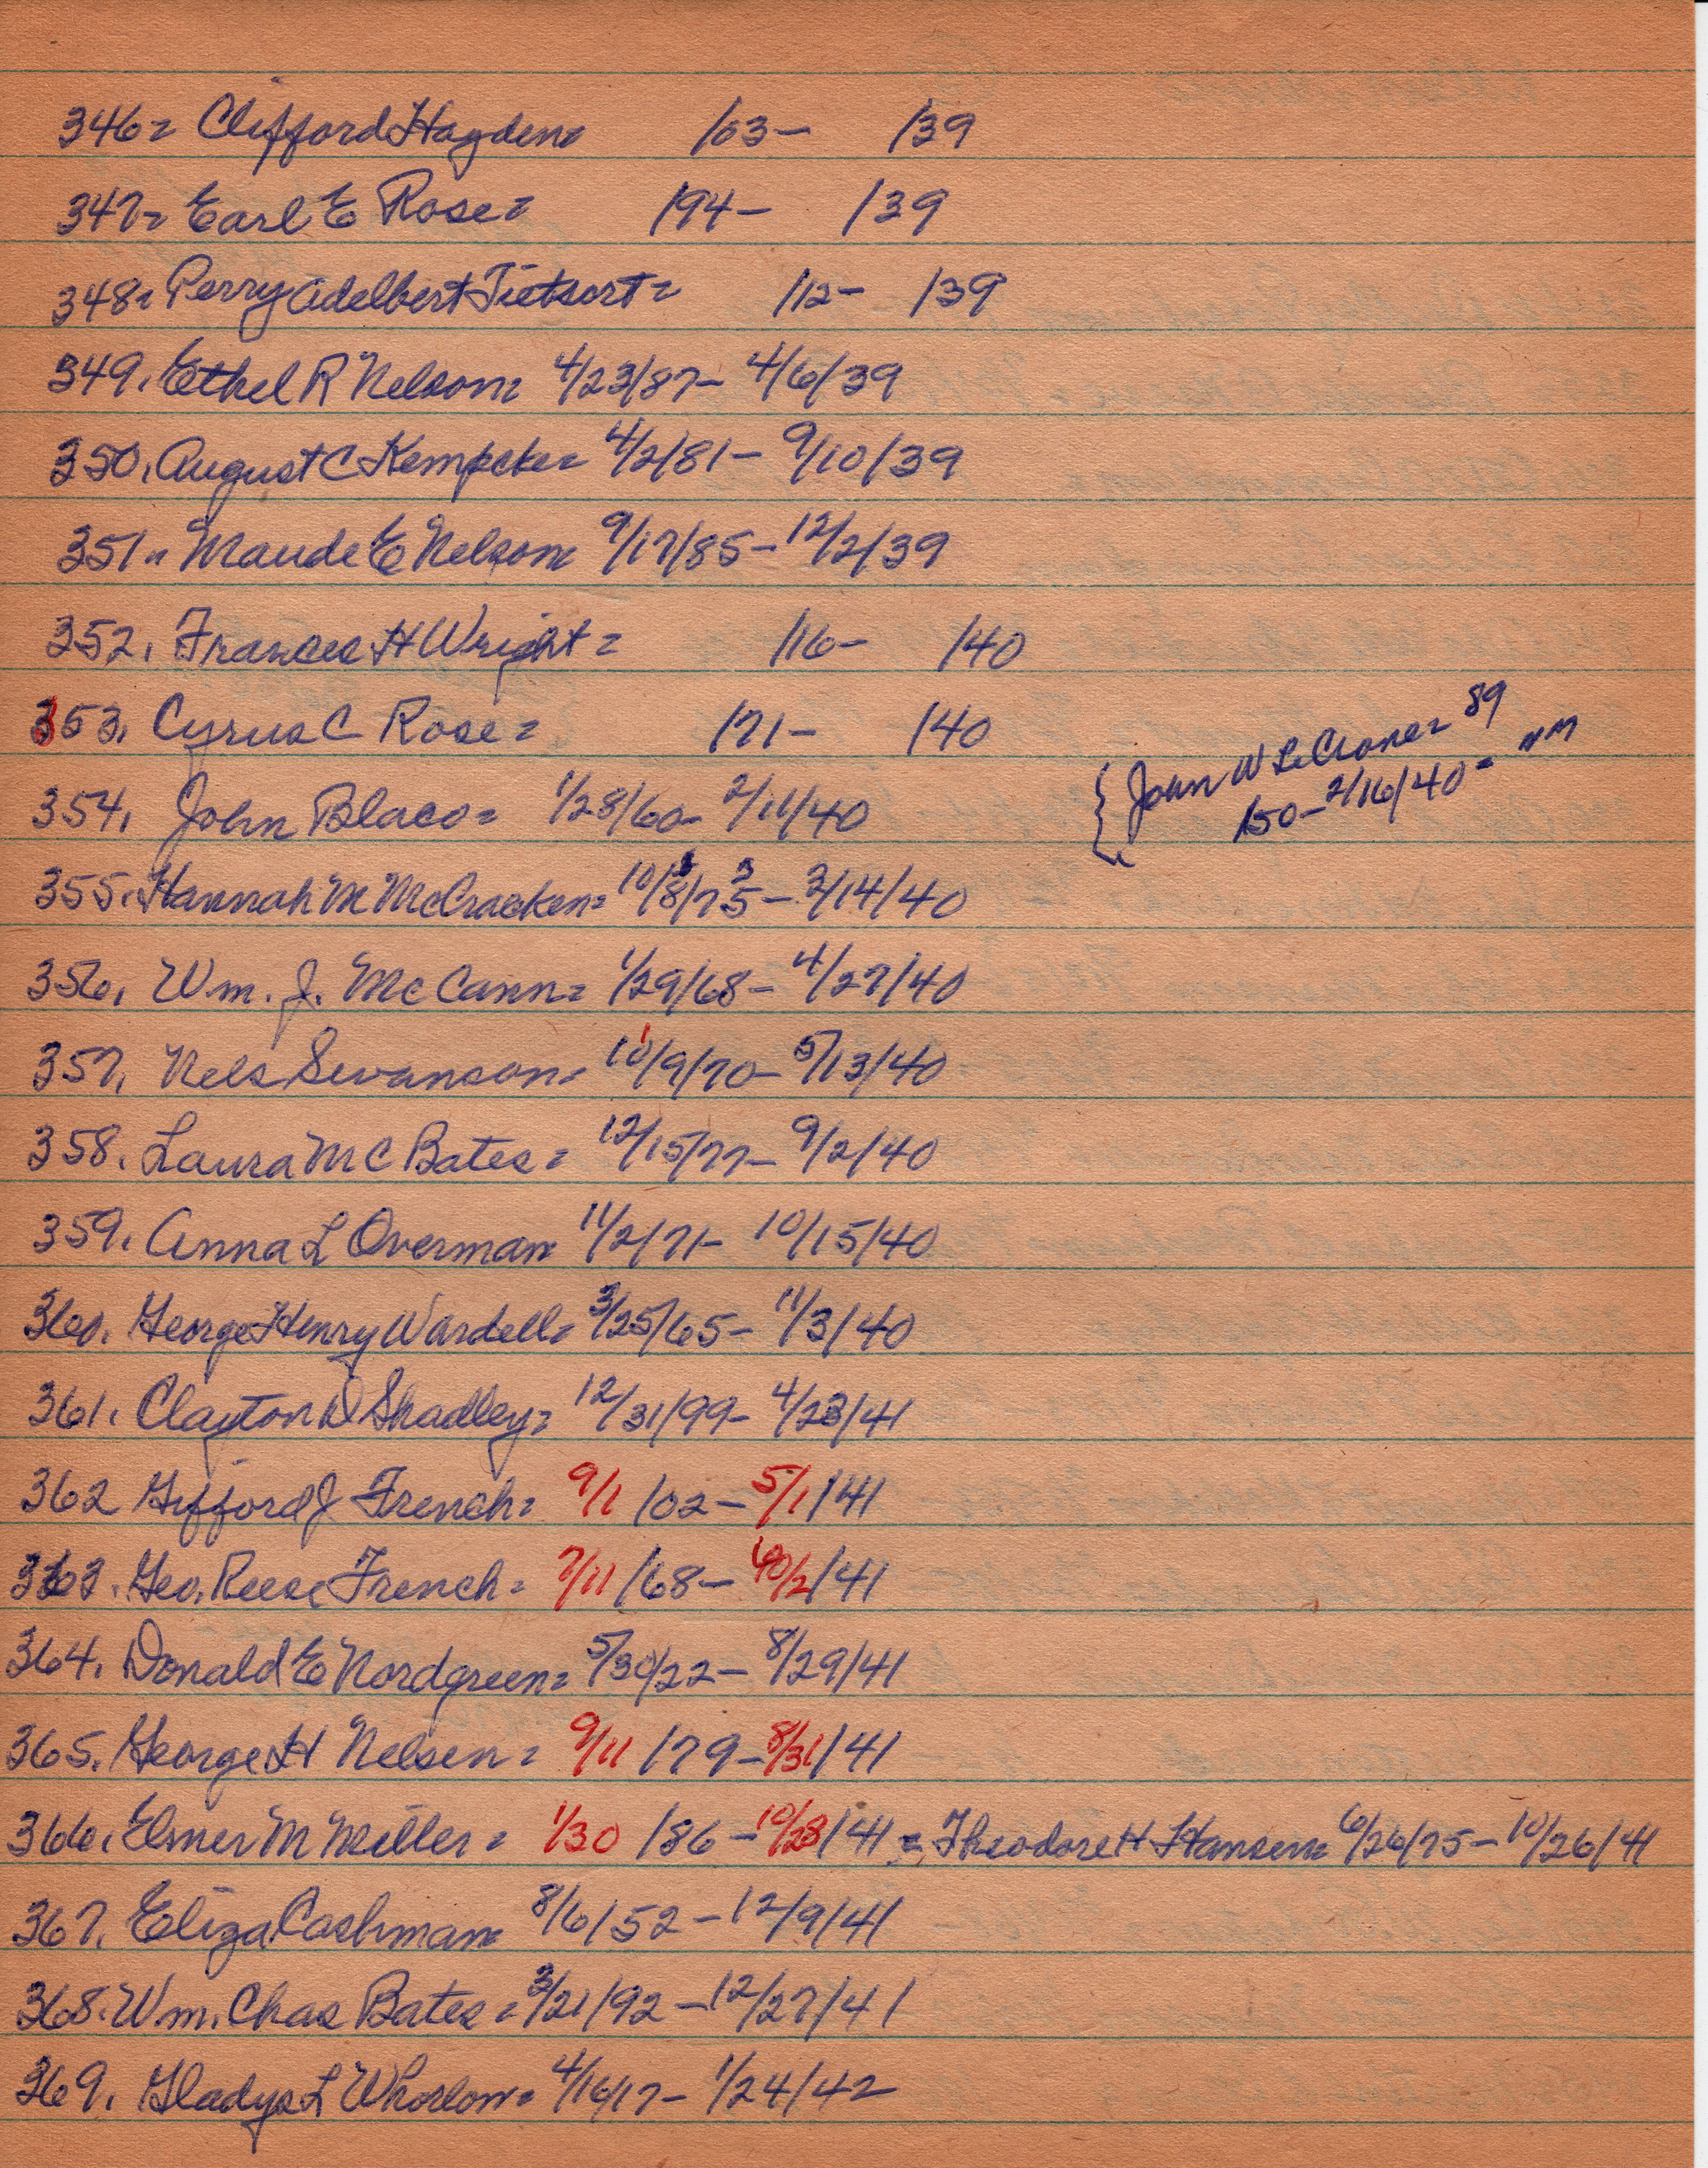 346= Clifford Hayden= /03- /39
347= Earl E Rose= /94- /39
348= Perry Adelbert Tietsort= /12- /39
349. Ethel R Nelson= 4/23/87- 4/6/39
350. August C Kempcke= 4/2/81- 9/10/39
351= Maude E Nelson= 9/17/85- 12/2/39
352. Frances H Wright= /16- /40
353. Cyrus C Rose= /71- /40
{ John W LeCrone= 89
/50- 2/16/40=
354. John Blaco= 1/28/60- 2/11/40
355. Hannah M McCracken= 10/8/75 3- 2/14/40
356. Wm. J. McCann= 1/29/68- 4/27/40
357. Nels Swanson= 10/9/70- 5/13/40
358. Laura McC Bates= 12/15/77- 9/2/40
359. Anna L Overman 11/2/71- 10/15/40
360. George Henry Wardell= 3/25/65- 11/3/40
361. Clayton D Shadley= 12/31/99- 4/23/41
362 Gifford J French= 9/1 /02- 5/1/41
363. Geo. Reese French= 7/11 /68- /41
364. Donald E Nordgreen= 5/30/22- 8/29/41
365. George H Nelsen= 9/11 /79- 8/31/41
366. Elmer M Miller= 1/30 /86- 10/28/41 = Theodore H Hansen= 6/26/75- 10/26/41
367. Eliza Cashman= 8/6/52- 12/9/41
368. Wm. Chas Bates= 3/21/92- 12/27/41
369. Gladys L Whorlow= 4/16/17- 1/24/42